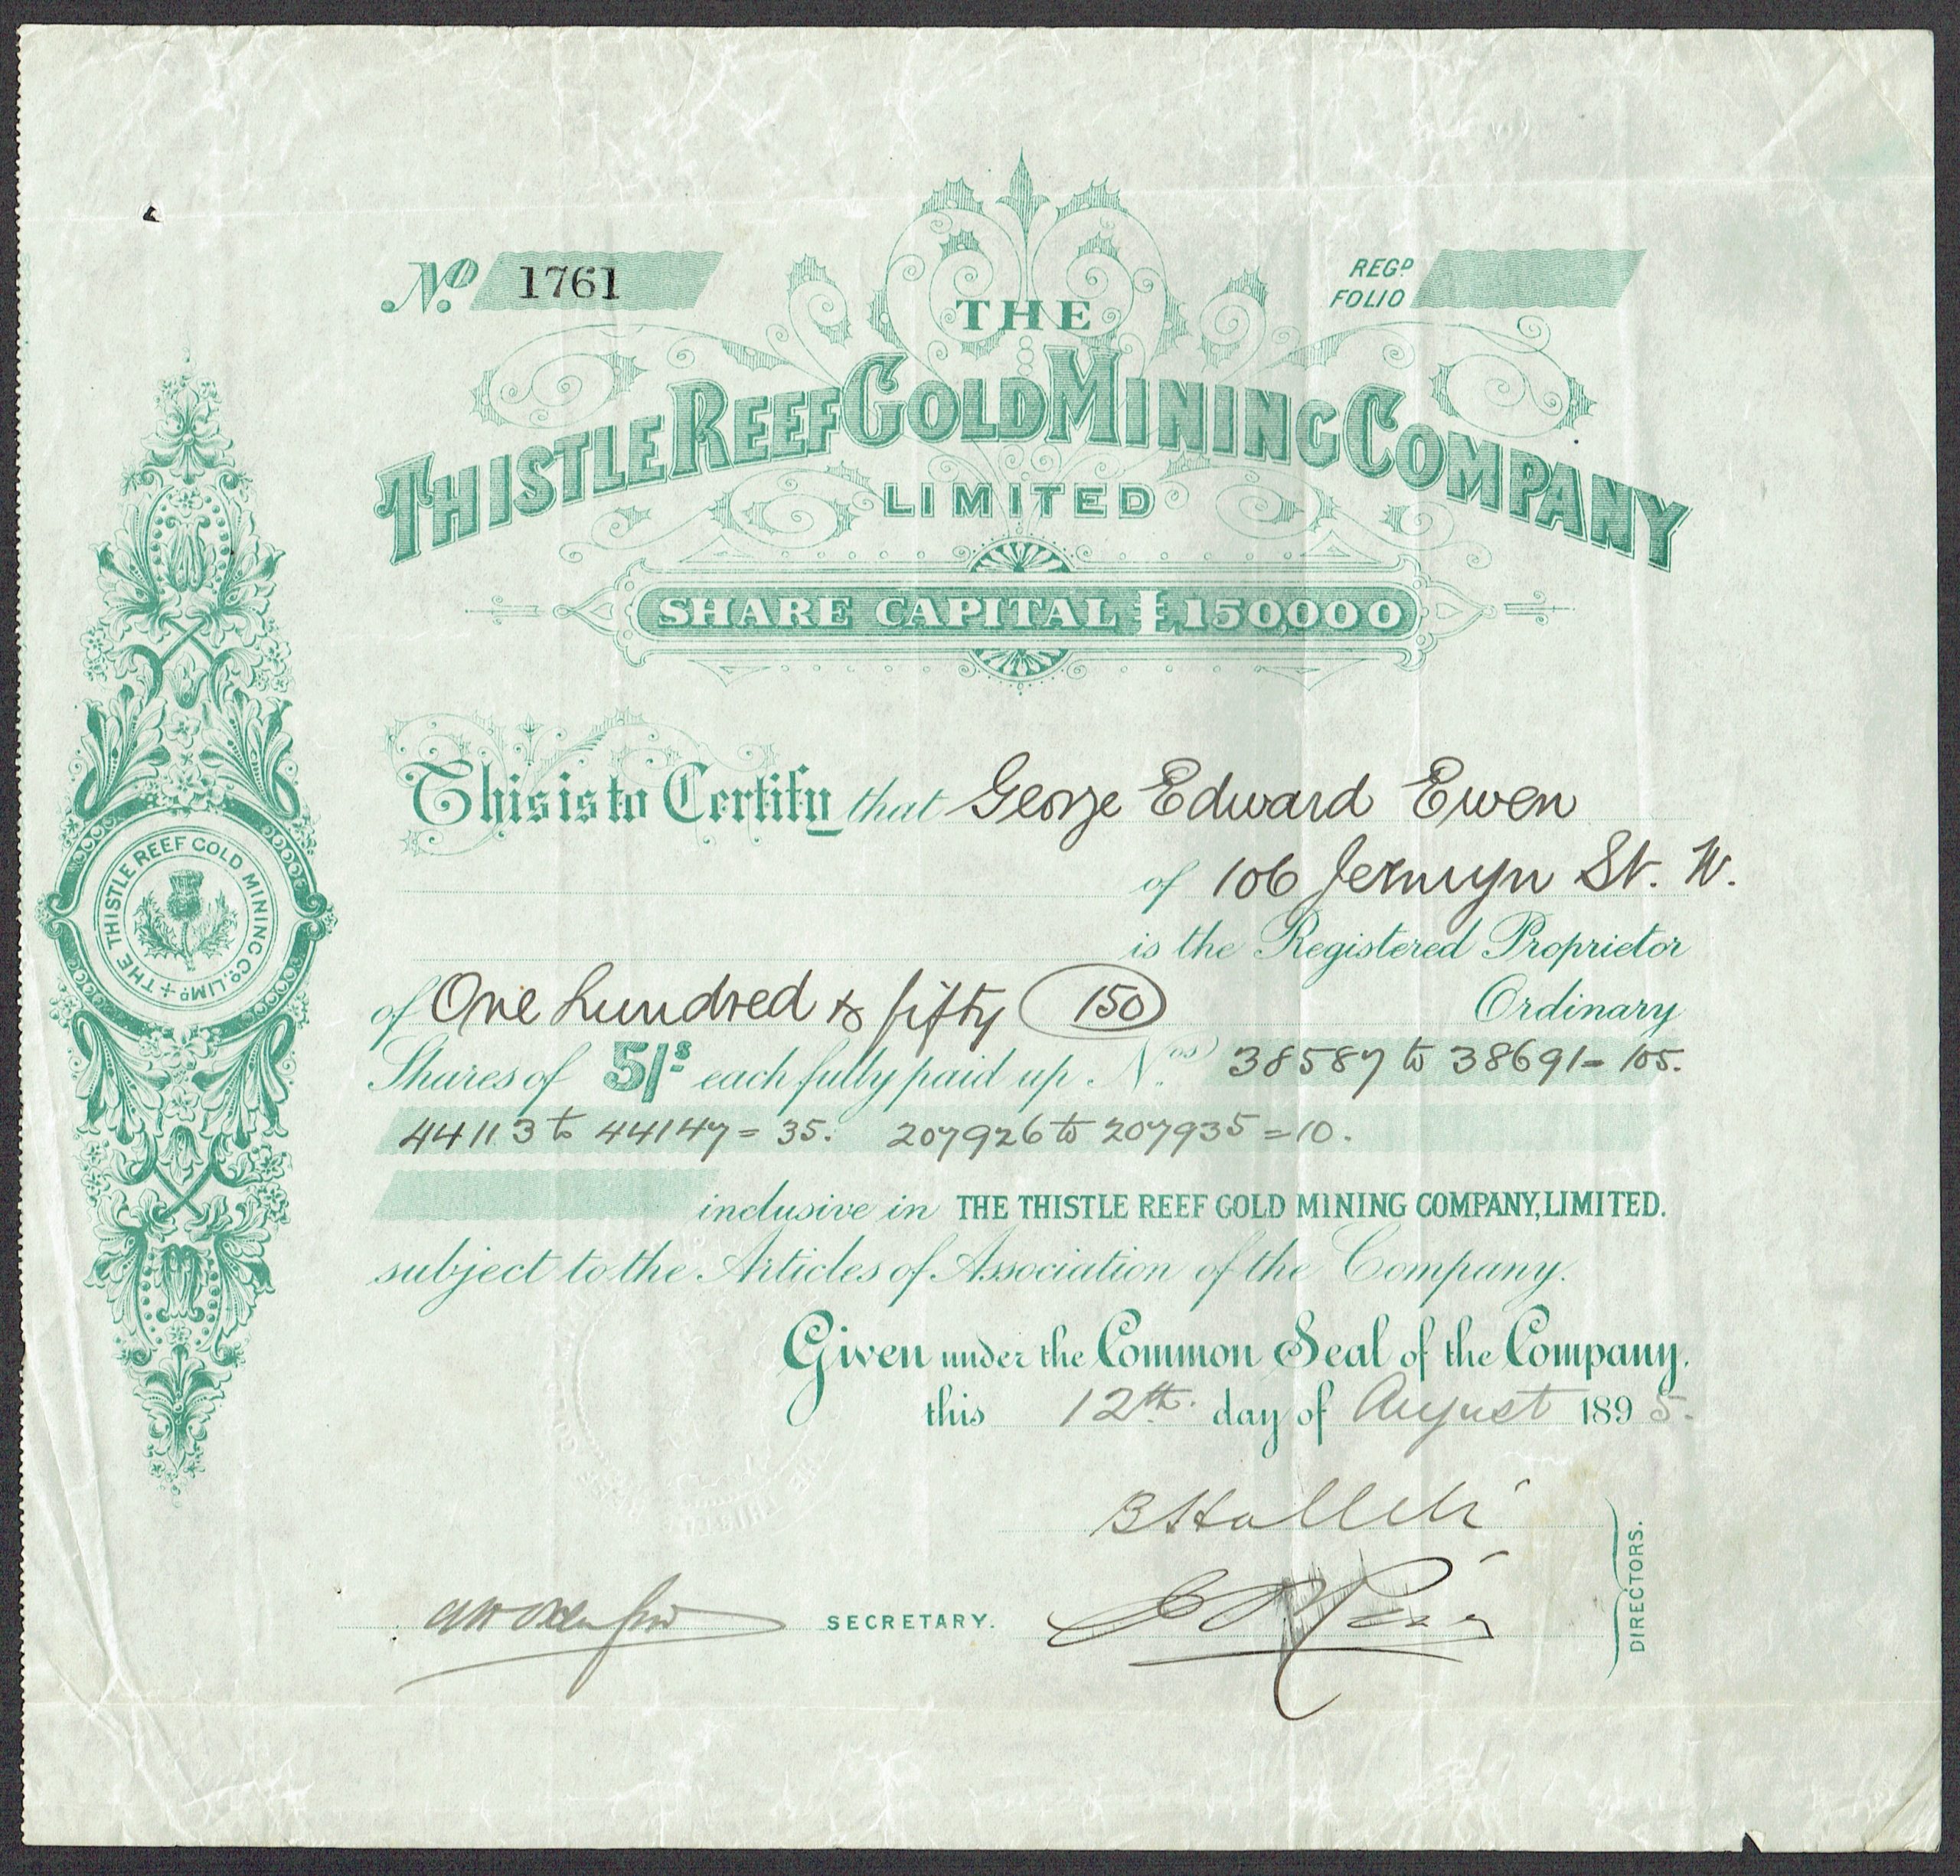 No. 1761
REGD
FOLIO
THE
THISTLE REEF GOLD MINING COMPANY
LIMITED
SHARE CAPITAL £150,000
This is to Certify that George Edward Ewen
of 106 Jermyn St. W.
is the Registered Proprietor
of One hundred & fifty (150)
Ordinary
Shares of 5/s each fully paid up Nos 38587 to 38691 = 105.
44113 to 44147 = 35. 207926 to 207935 = 10.
inclusive in THE THISTLE REEF GOLD MINING COMPANY, LIMITED.
subject to the Articles of Association of the Company.
Given under the Common Seal of the Company.
this 12th. day of August 1895.
SECRETARY.
DIRECTORS.
THE THISTLE REEF GOLD MINING CO. LIMD +